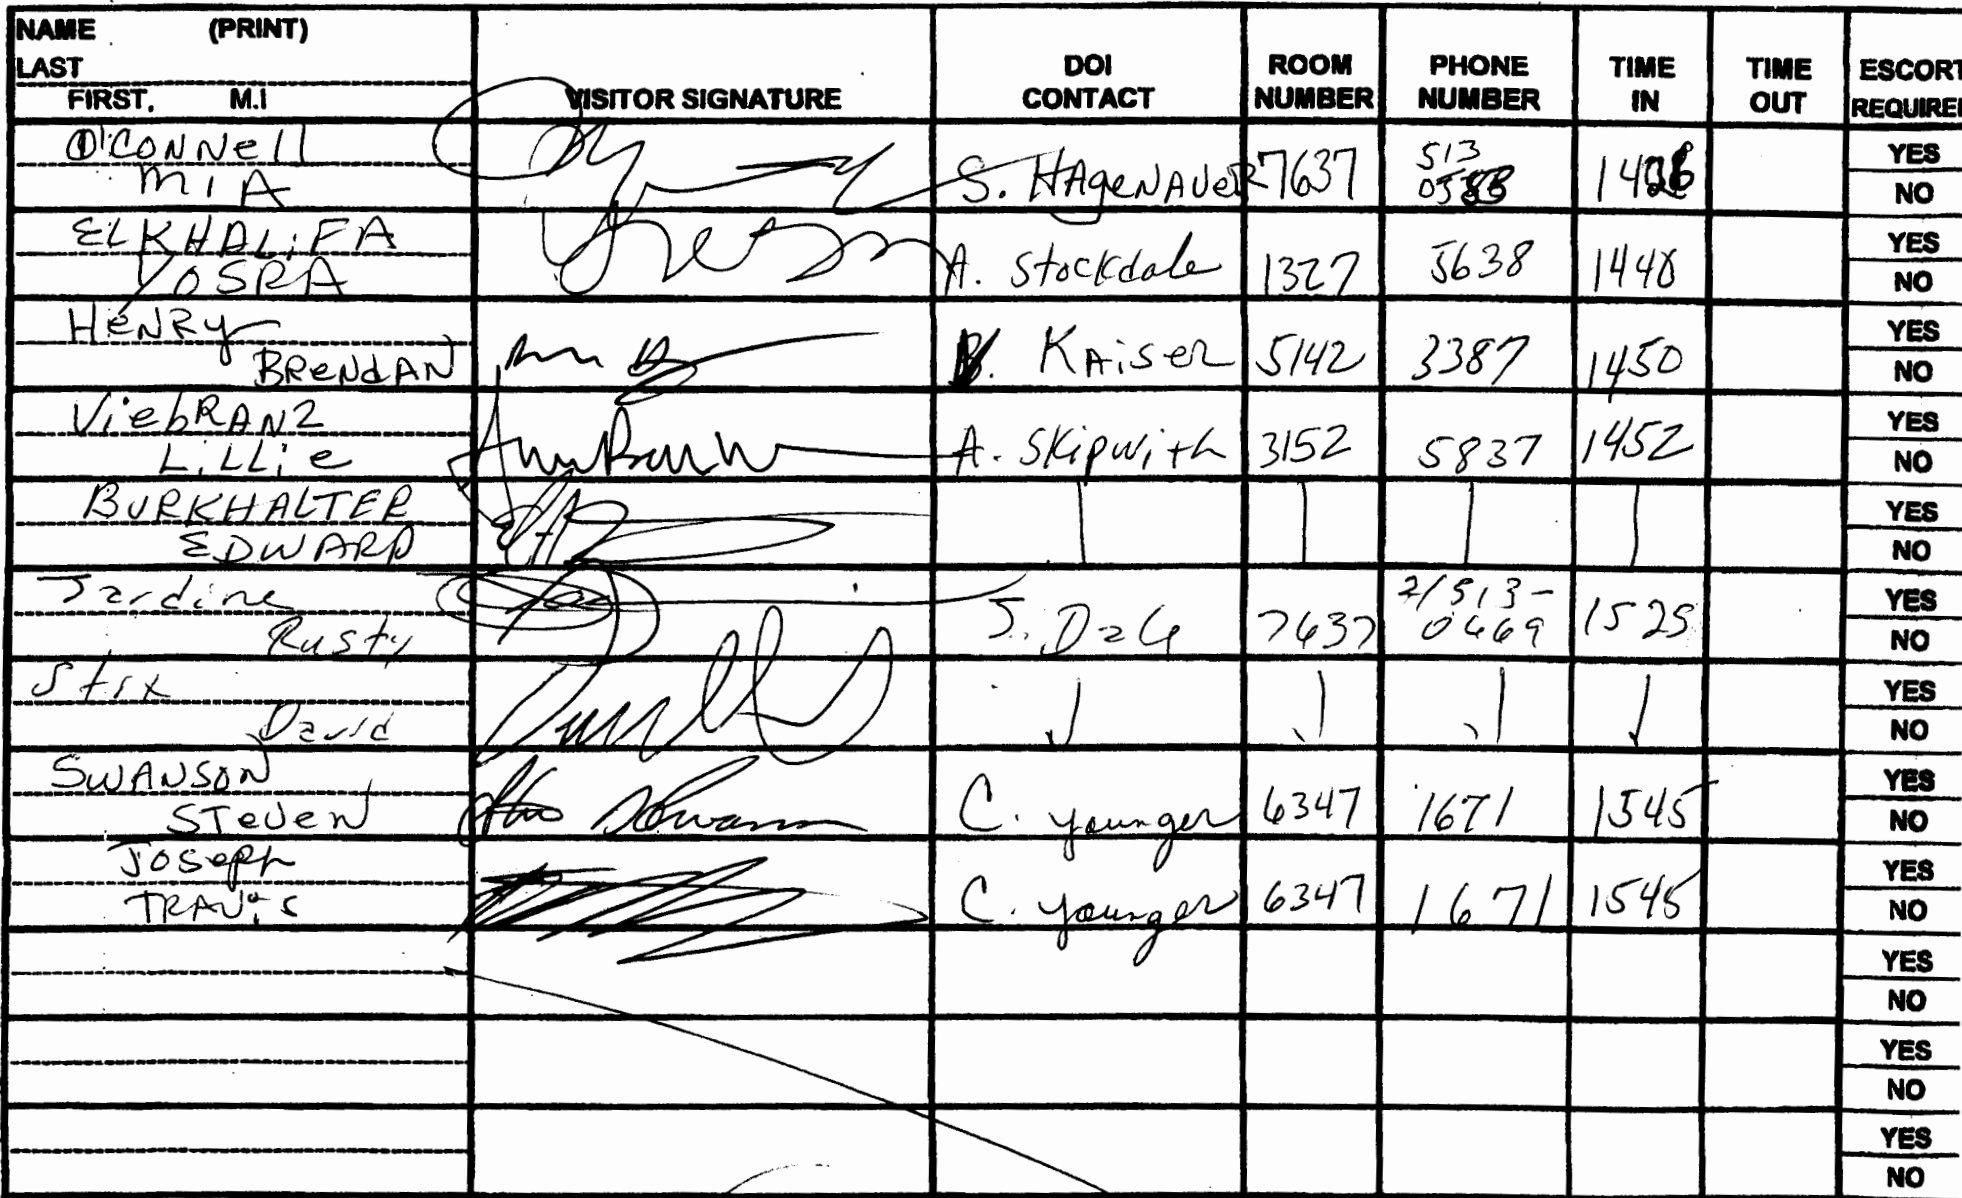 NAME (PRINT)
LAST
FIRST, M.I
VISITOR SIGNATURE
DOI CONTACT
ROOM NUMBER
PHONE NUMBER
TIME IN
TIME OUT
ESCORT REQUIRED
O'CONNell
MIA
S. HAgeNAUeR 7637 513
YES
NO
ELKHALiFA
YOSRA
A. Stockdale 1327 5638 1440
YES
NO
HeNRy
BReNdAN
KAiseR 5142 3387 1450
YES
NO
ViebRANZ
LiLLie
A. Skipwith 3152 5837 1452
YES
NO
BURKHALTER
EDWARD
YES
NO
Jardine
Rusty
J. Dale 7637 2/513-
0469 1525
YES
NO
David
YES
NO
SWANSON
STeveN
C. younger 6347 1671 1545
YES
NO
Joseph
TRAVis
C. younger 6347 1671 1545
YES
NO
YES
NO
YES
NO
YES
NO